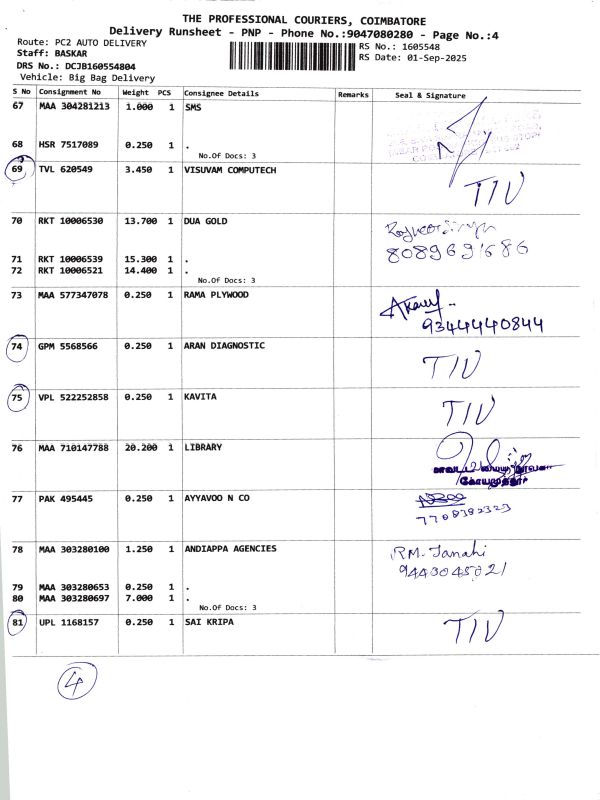 THE PROFESSIONAL COURIERS, COIMBATORE
Delivery Runsheet - PNP - Phone No.:9047080280 - Page No.:4
Route: PC2 AUTO DELIVERY
Staff: BASKAR
DRS No.: DCJB160554804
Vehicle: Big Bag Delivery
RS No.: 1605548
RS Date: 01-Sep-2025
S No Consignment No Weight PCS Consignee Details Remarks Seal & Signature
67 MAA 304281213 1.000 1 SMS
68 HSR 7517089 0.250 1 .
No.Of Docs: 3
69 TVL 620549 3.450 1 VISUVAM COMPUTECH TIV
70 RKT 10006530 13.700 1 DUA GOLD
8089691686
71 RKT 10006539 15.300 1 .
72 RKT 10006521 14.400 1 .
No.Of Docs: 3
73 MAA 577347078 0.250 1 RAMA PLYWOOD
9344440844
74 GPM 5568566 0.250 1 ARAN DIAGNOSTIC TIV
75 VPL 522252858 0.250 1 KAVITA TIV
76 MAA 710147788 20.200 1 LIBRARY
77 PAK 495445 0.250 1 AYYAVOO N CO
7708392323
78 MAA 303280100 1.250 1 ANDIAPPA AGENCIES RM. Janaki
9443045021
79 MAA 303280653 0.250 1 .
80 MAA 303280697 7.000 1 .
No.Of Docs: 3
81 UPL 1168157 0.250 1 SAI KRIPA TIV
4